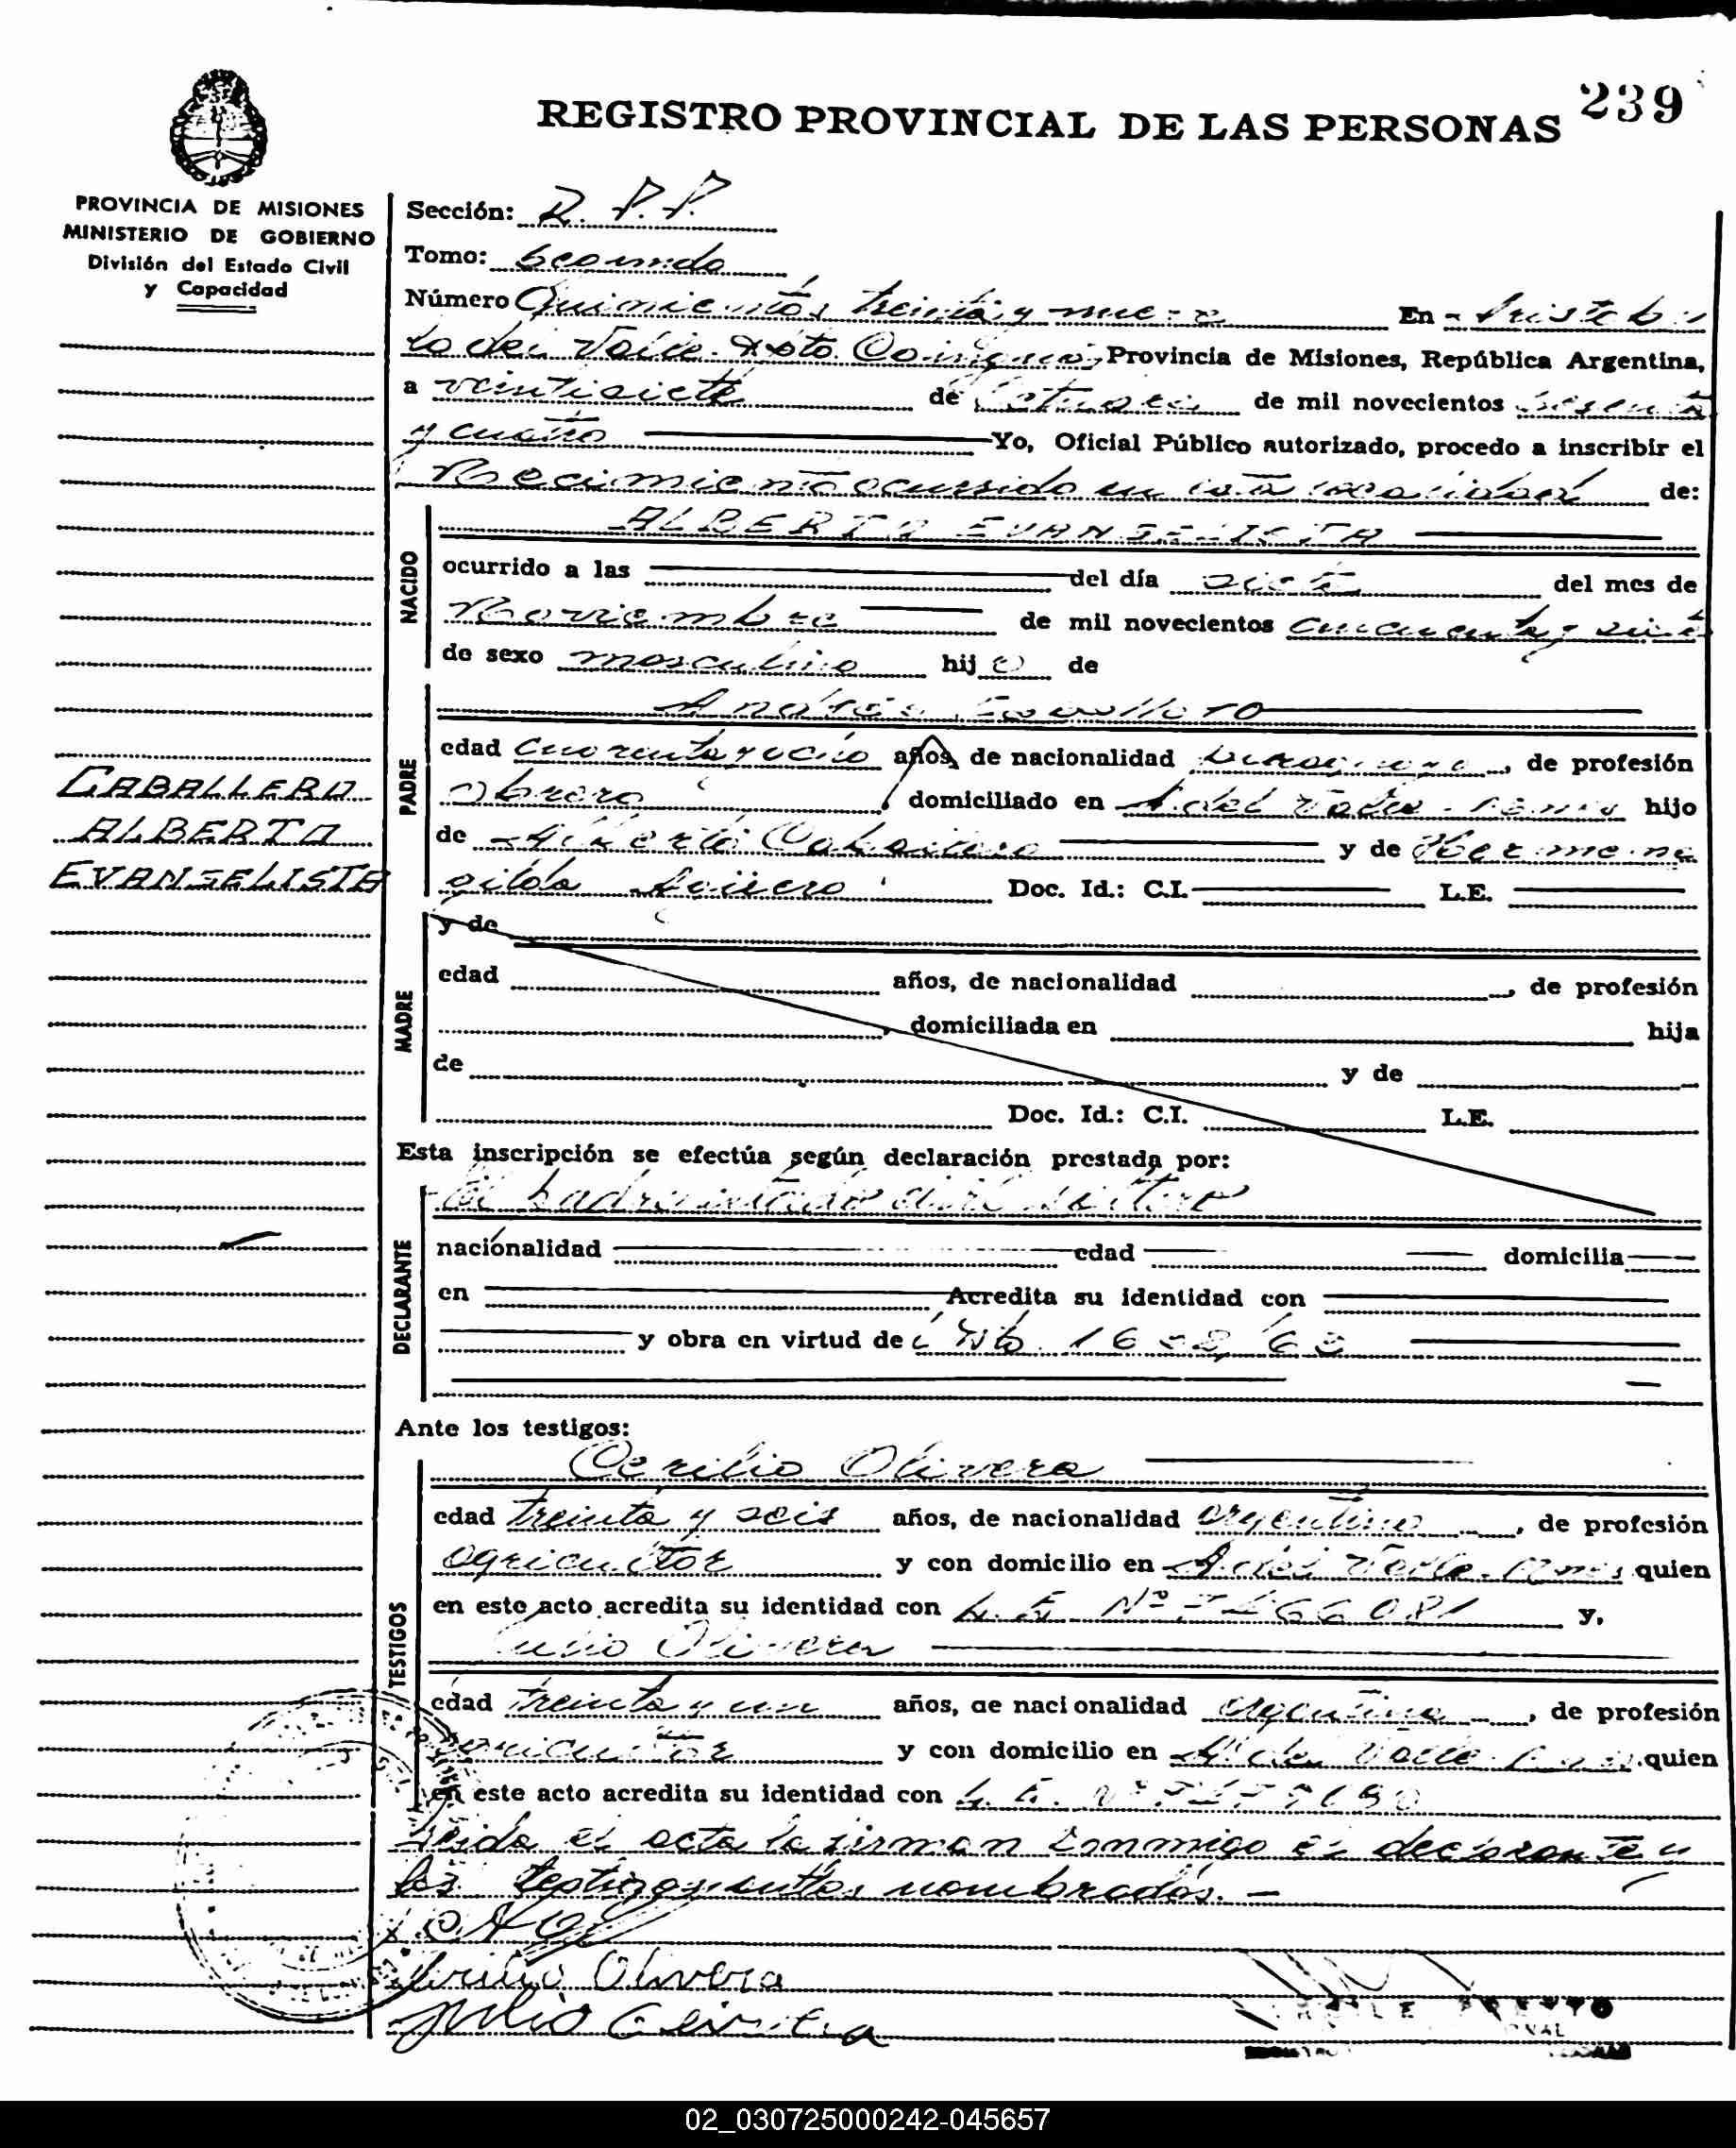 REGISTRO PROVINCIAL DE LAS PERSONAS 239
PROVINCIA DE MISIONES
MINISTERIO DE GOBIERNO
División del Estado Civil
y Capacidad
Sección: R. P. P.
Tomo: Segundo
Número Quinientos treinta y nueve En Aristobu
lo del Valle Dpto. Cainguas, Provincia de Misiones, República Argentina,
a veintisiete de Octubre de mil novecientos sesenta
y cuatro Yo, Oficial Público autorizado, procedo a inscribir el
Nacimiento ocurrido en esta localidad de:
NACIDO
ALBERTO EVANGELISTA
ocurrido a las del día siete del mes de
Noviembre de mil novecientos cincuenta y siete
de sexo masculino hijo de
CABALLERO
ALBERTO
EVANGELISTA
PADRE
Andrés Caballero
edad cuarenta y ocho años, de nacionalidad paraguaya, de profesión
obrero, domiciliado en A. del Valle - Mnes hijo
de Alberto Caballero y de Hermene
gilda Agüero Doc. Id.: C.I. L.E.
MADRE
y de
edad años, de nacionalidad , de profesión
, domiciliada en hija
de y de
Doc. Id.: C.I. L.E.
Esta inscripción se efectúa según declaración prestada por:
DECLARANTE
El padre estado civil soltero
nacionalidad edad domicilia
en Acredita su identidad con
y obra en virtud de
Ante los testigos:
TESTIGOS
Cecilio Olivera
edad treinta y seis años, de nacionalidad argentino, de profesión
agricultor y con domicilio en A. del Valle - Mnes quien
en este acto acredita su identidad con L. E. Nº y,
Julio Olivera
edad treinta y un años, de nacionalidad argentino, de profesión
agricultor y con domicilio en A. del Valle - Mnes quien
en este acto acredita su identidad con L. E. Nº
Leida el acta la firman conmigo el declarante y
los testigos antes nombrados. -
Cecilio Olivera
Julio Olivera
02_030725000242-045657